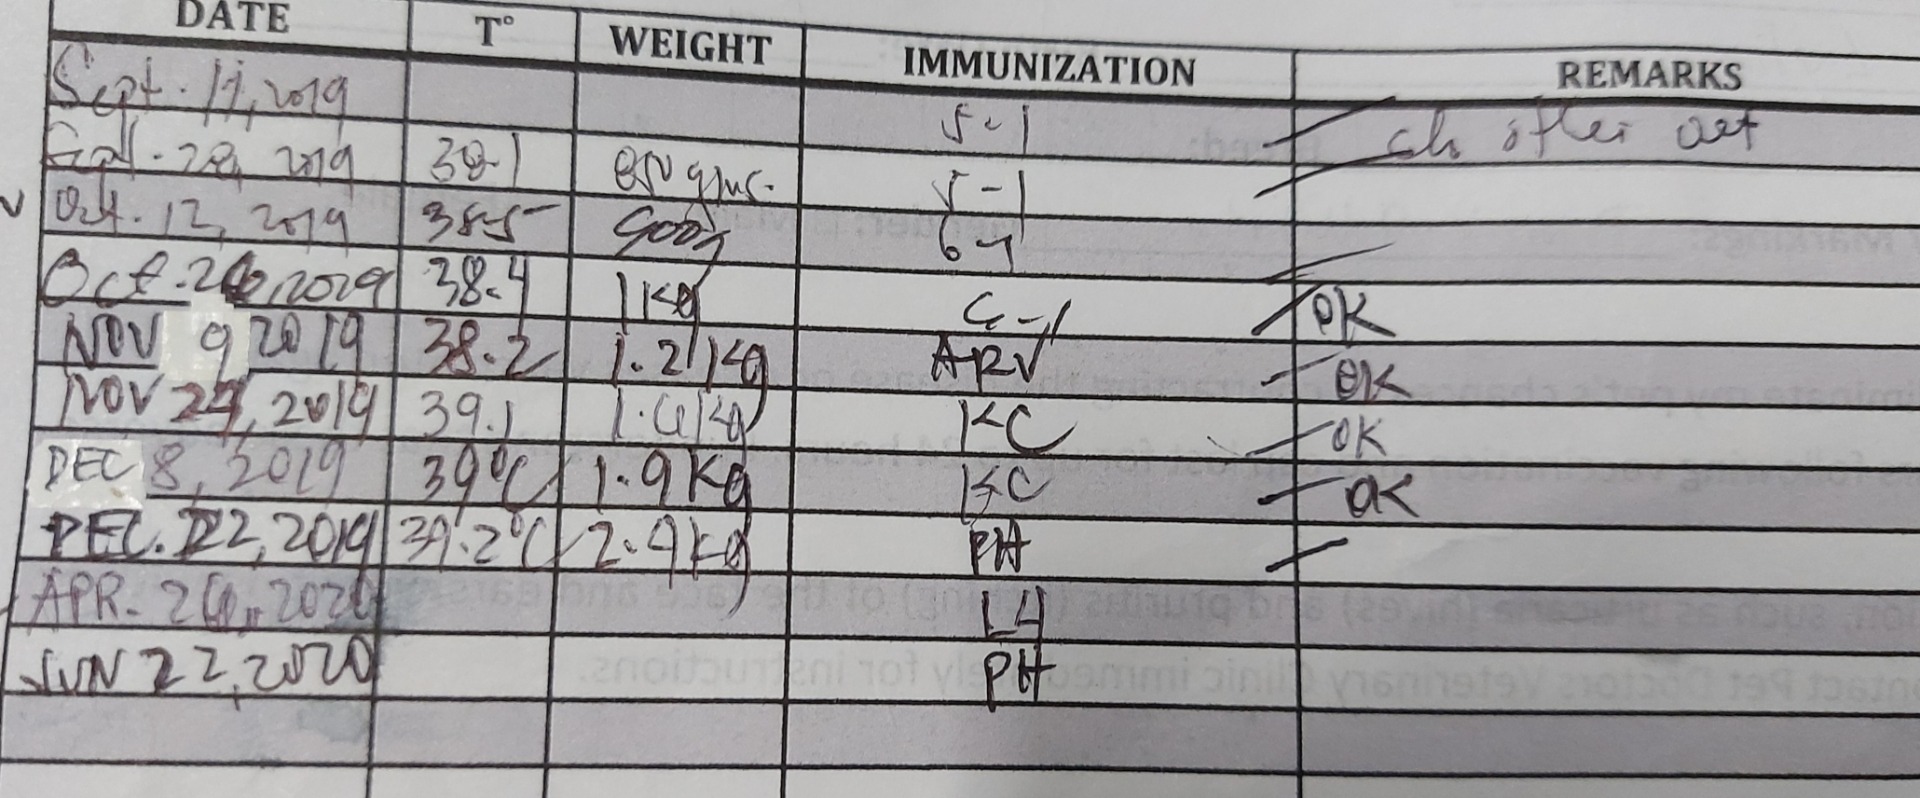 DATE T° WEIGHT IMMUNIZATION REMARKS
Sept. 14, 2019 5-1 after
Sept. 28, 2019 38.1 850 gms. 5-1
Oct. 12, 2019 38.5 900g 6-1
Oct. 26, 2019 38.4 1 Kg OK
NOV 9 2019 38.2 1.2 Kg ARV OK
NOV 24, 2019 39.1 KC OK
DEC 8, 2019 39°C 1.9 Kg KC OK
DEC. 22, 2019 39.2°C 2.9 Kg PH
APR. 2020 L4
JUN 22, 2020 PH